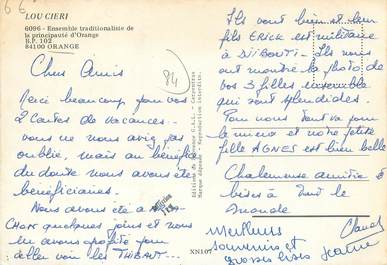 6 6
LOU CIERI
6096 - Ensemble traditionaliste de
la principauté d'Orange
B.P. 102
84100 ORANGE
84
Chers Amis
Merci beaucoup pour vos
2 Cartes de vacances.
vous ne nous avez pas
oublié, mais au bénéfice
du doute nous avons été
bénéficiaires.
Nous avons été a
CHON quelques jours et nous
en avons profité pour
aller voir les THIBAUT...
Ils vont bien et leur
fils ERICK est militaire
à DJIBOUTI. Ils nous
ont montré la photo de
vos 3 filles ensemble
qui sont splendides.
Pour nous tout va pour
le mieux et notre petite
fille AGNES est bien belle
Chaleureuse amitié
bises à tout le
monde
Claude
Meilleurs
souvenirs et
grosses bises
Jeanne
XN107
Marque déposée - Reproduction interdite.